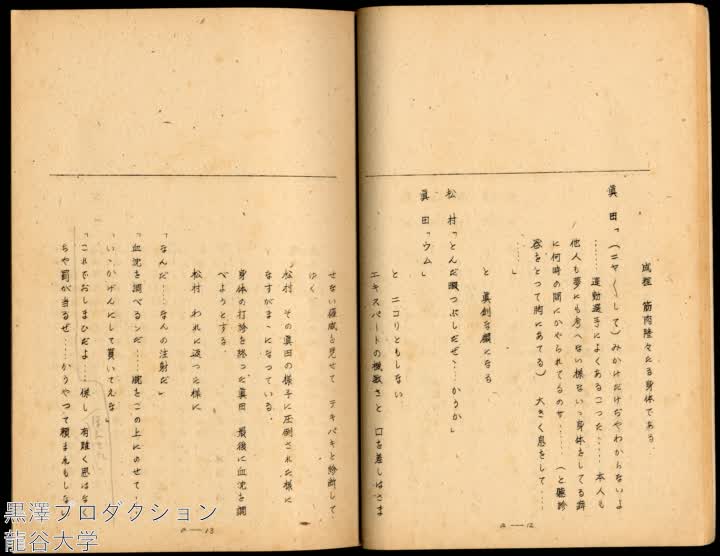 成程 筋肉隆々たる身体である
眞田「(ニヤ〳〵して)みかけだけぢやわからないよ
……運動選手によくあるこつた……本人も
他人も夢にも考へない様ないゝ身体をしてる癖
に何時の間にかやられてるのサ……(と聴診
器をとつて胸にあてる)大きく息をして…
…」
と 眞剣な顔になる
松村「とんだ暇つぶしだぜ…かうか」
眞田「ウム」
と ニコリともしない
エキスパートの機敏さと 口を差しはさま
a—12
せない権威を見せて テキパキと診断して
ゆく
松村 その眞田の様子に圧倒された様に
なすがまゝになつている
身体の打診を終つた眞田 最後に血沈を調
べようとする
松村 われに返つた様に
「なんだ……なんの注射だ」
「血沈を調べるンだ……腕をこの上にのせて…
「いゝかげんにして貰いてえな」
「これでおしまひだよ……併し 有難く思はな
ちや罰が当るぜ……かうやつて頼まれもしな
a—13
黒澤プロダクション
龍谷大学